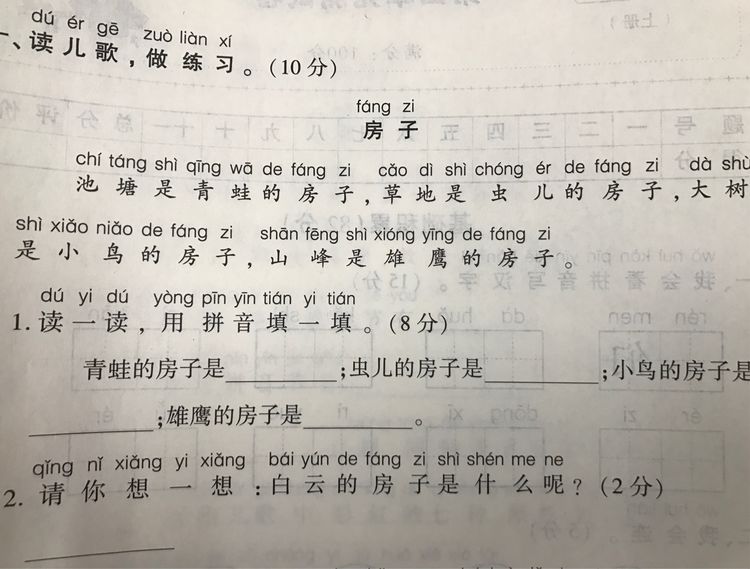 dú ér gē zuò liàn xí
一、读儿歌，做练习。(10分)
fáng zi
房子
chí táng shì qīng wā de fáng zi cǎo dì shì chóng ér de fáng zi dà shù
池塘是青蛙的房子，草地是虫儿的房子，大树
shì xiǎo niǎo de fáng zi shān fēng shì xióng yīng de fáng zi
是小鸟的房子，山峰是雄鹰的房子。
dú yi dú yòng pīn yīn tián yi tián
1. 读一读，用拼音填一填。(8分)
青蛙的房子是________；虫儿的房子是________；小鸟的房子是
________；雄鹰的房子是________。
qǐng nǐ xiǎng yi xiǎng bái yún de fáng zi shì shén me ne
2. 请你想一想：白云的房子是什么呢？(2分)